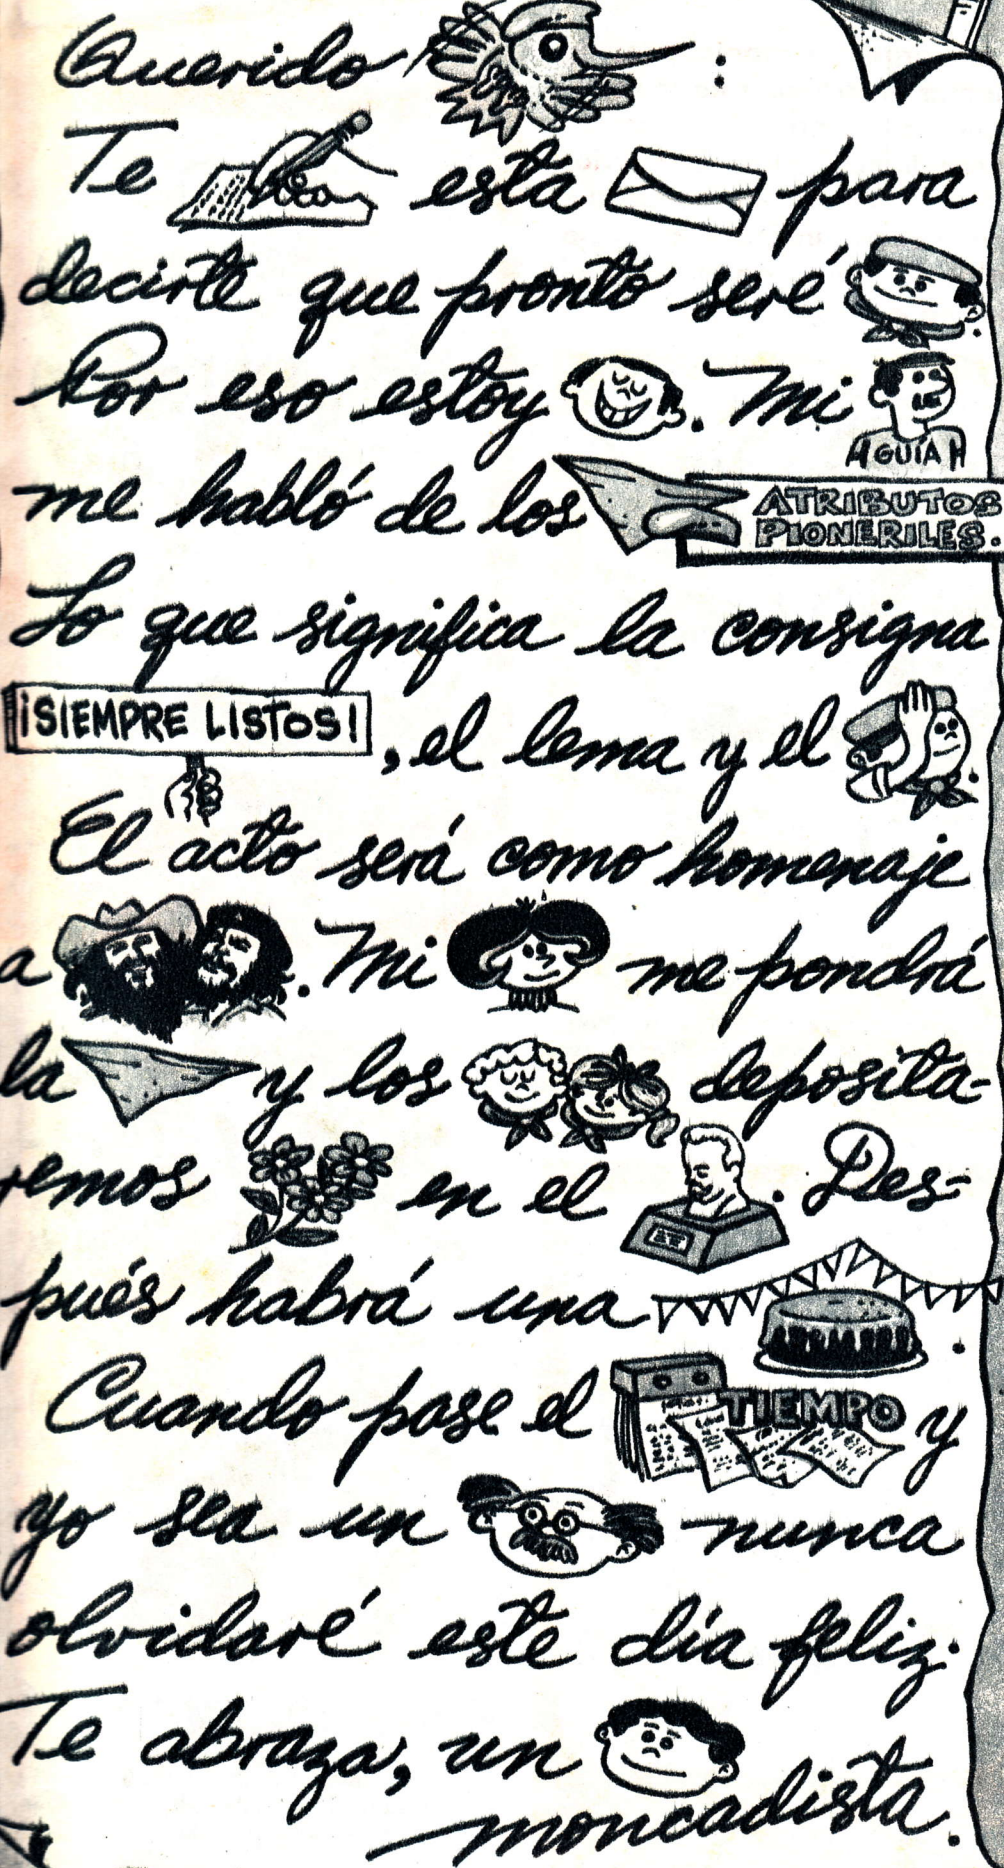 Querido :
Te esta para
decirte que pronto seré .
Por eso estoy . Mi
GUIA
me habló de los ATRIBUTOS
PIONERILES.
Lo que significa la consigna
¡SIEMPRE LISTOS!, el lema y el .
El acto será como homenaje
a . Mi me pondrá
la y los deposita-
remos en el . Des-
pués habrá una .
Cuando pase el TIEMPO y
yo sea un nunca
olvidaré este día feliz.
Te abraza, un
moncadista.